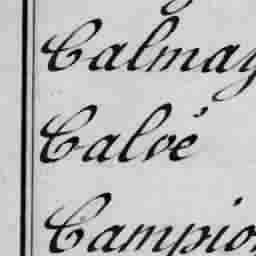 Calmay
Calvé
Campion